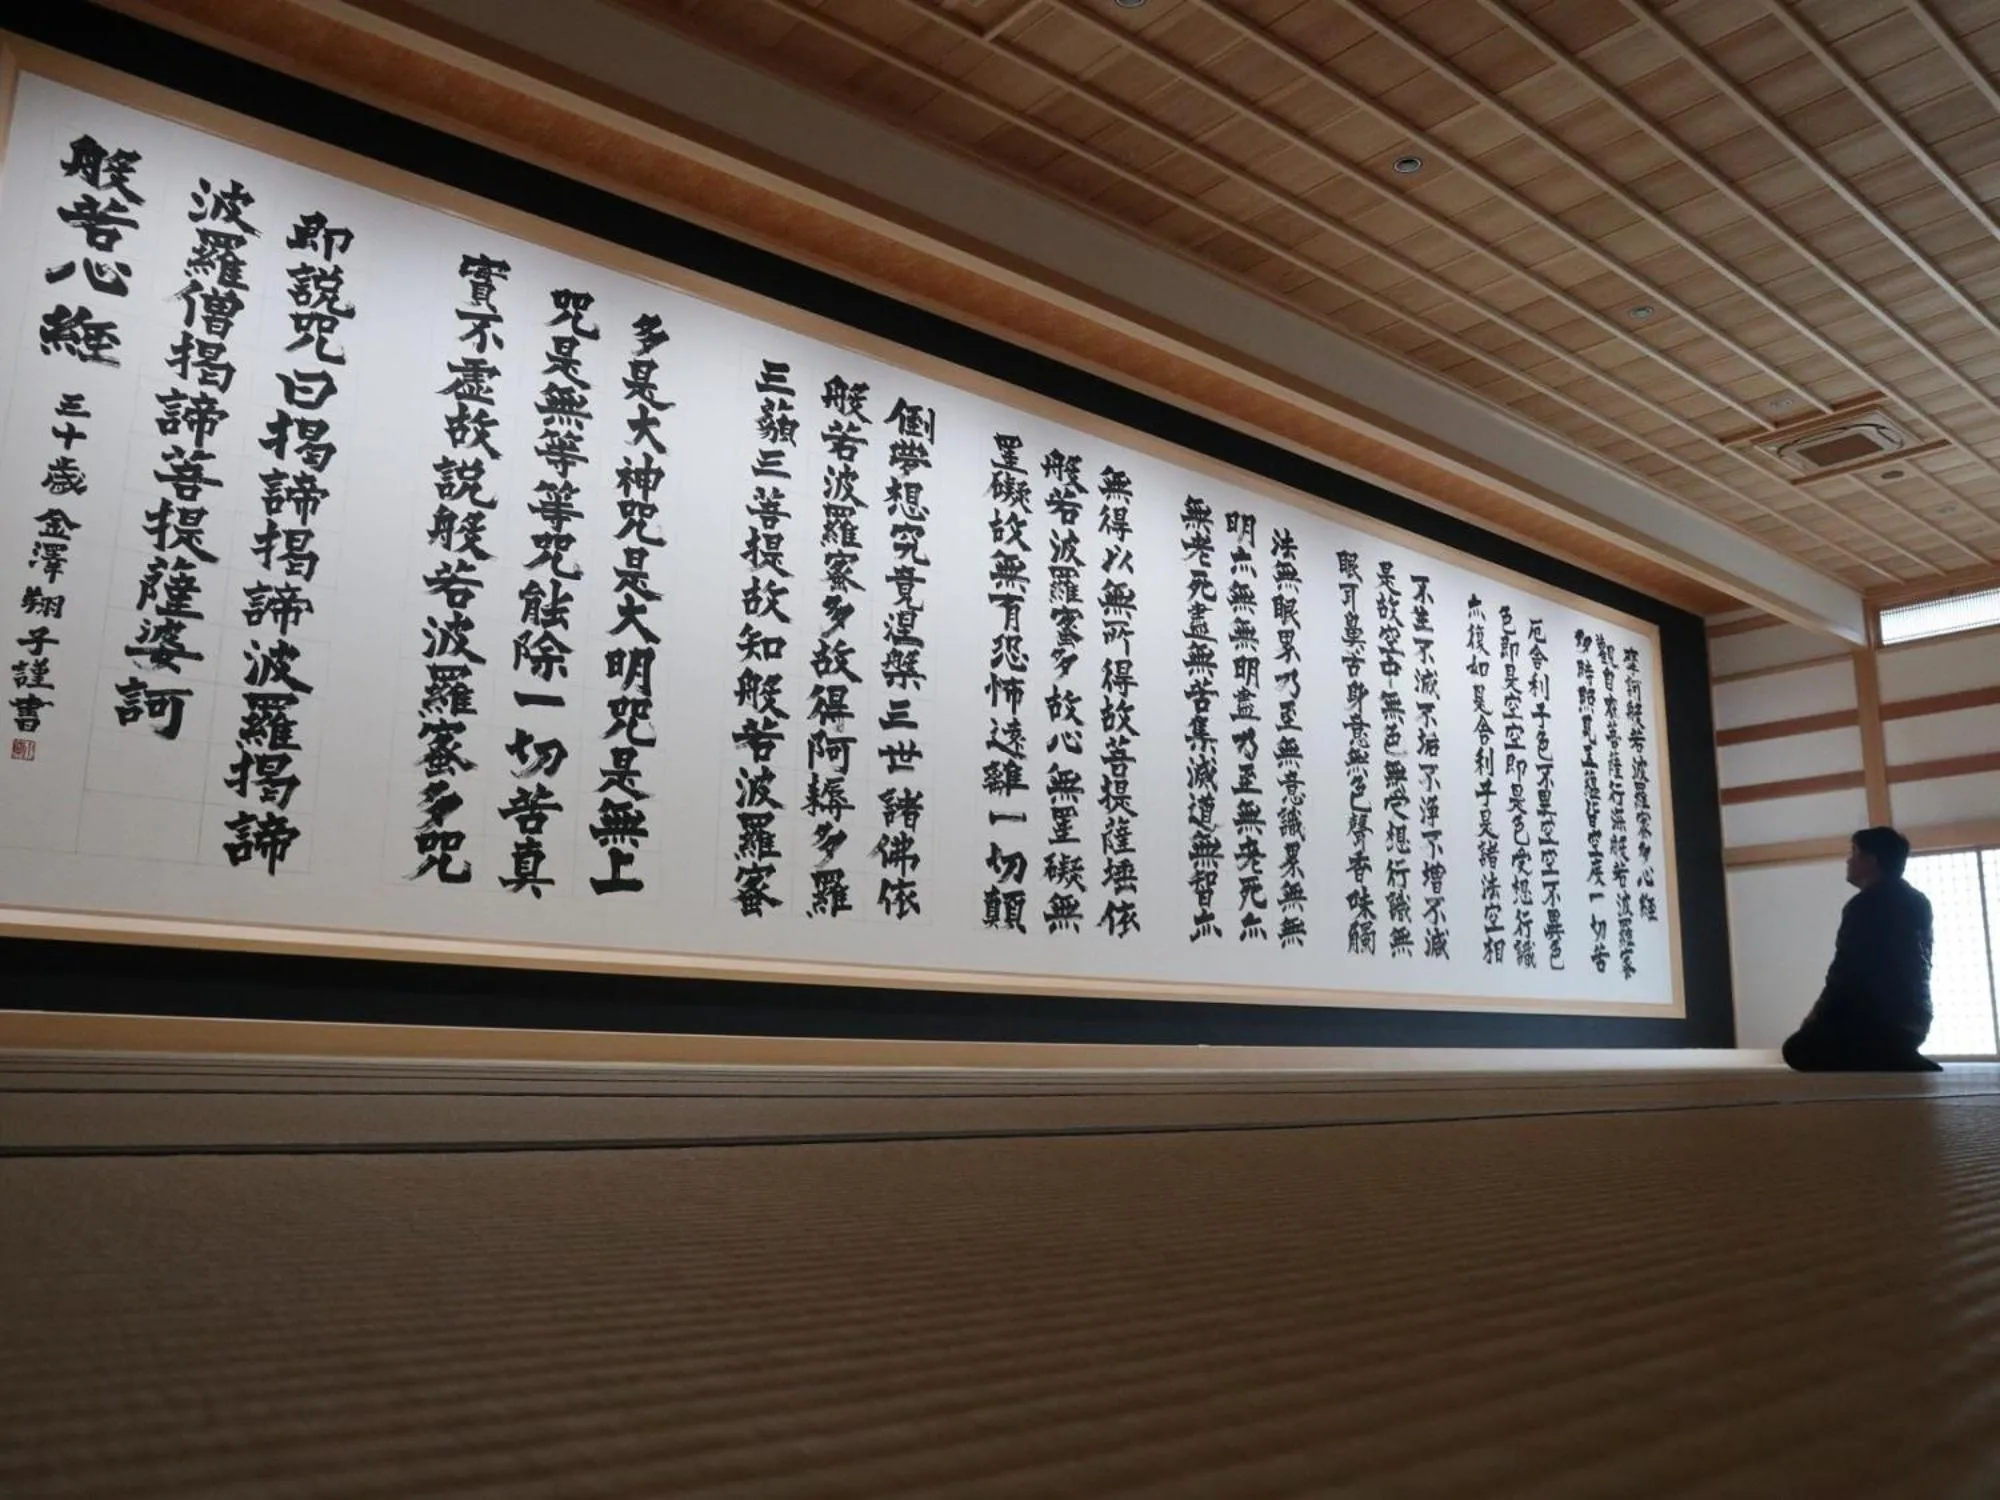 摩訶般若波羅蜜多心経
觀自在菩薩行深般若波羅蜜
多時照見五蘊皆空度一切苦
厄舎利子色不異空空不異色
色即是空空即是色受想行識
亦復如是舎利子是諸法空相
不生不滅不垢不淨不增不減
是故空中無色無受想行識無
眼耳鼻舌身意無色聲香味觸
法無眼界乃至無意識界無無
明亦無無明盡乃至無老死亦
無老死盡無苦集滅道無智亦
無得以無所得故菩提薩埵依
般若波羅蜜多故心無罣礙無
罣礙故無有恐怖遠離一切顛
倒夢想究竟涅槃三世諸佛依
般若波羅蜜多故得阿耨多羅
三藐三菩提故知般若波羅蜜
多是大神咒是大明咒是無上
咒是無等等咒能除一切苦真
實不虚故説般若波羅蜜多咒
即説咒曰揭諦揭諦波羅揭諦
波羅僧揭諦菩提薩婆訶
般若心經 三十歳 金澤翔子謹書